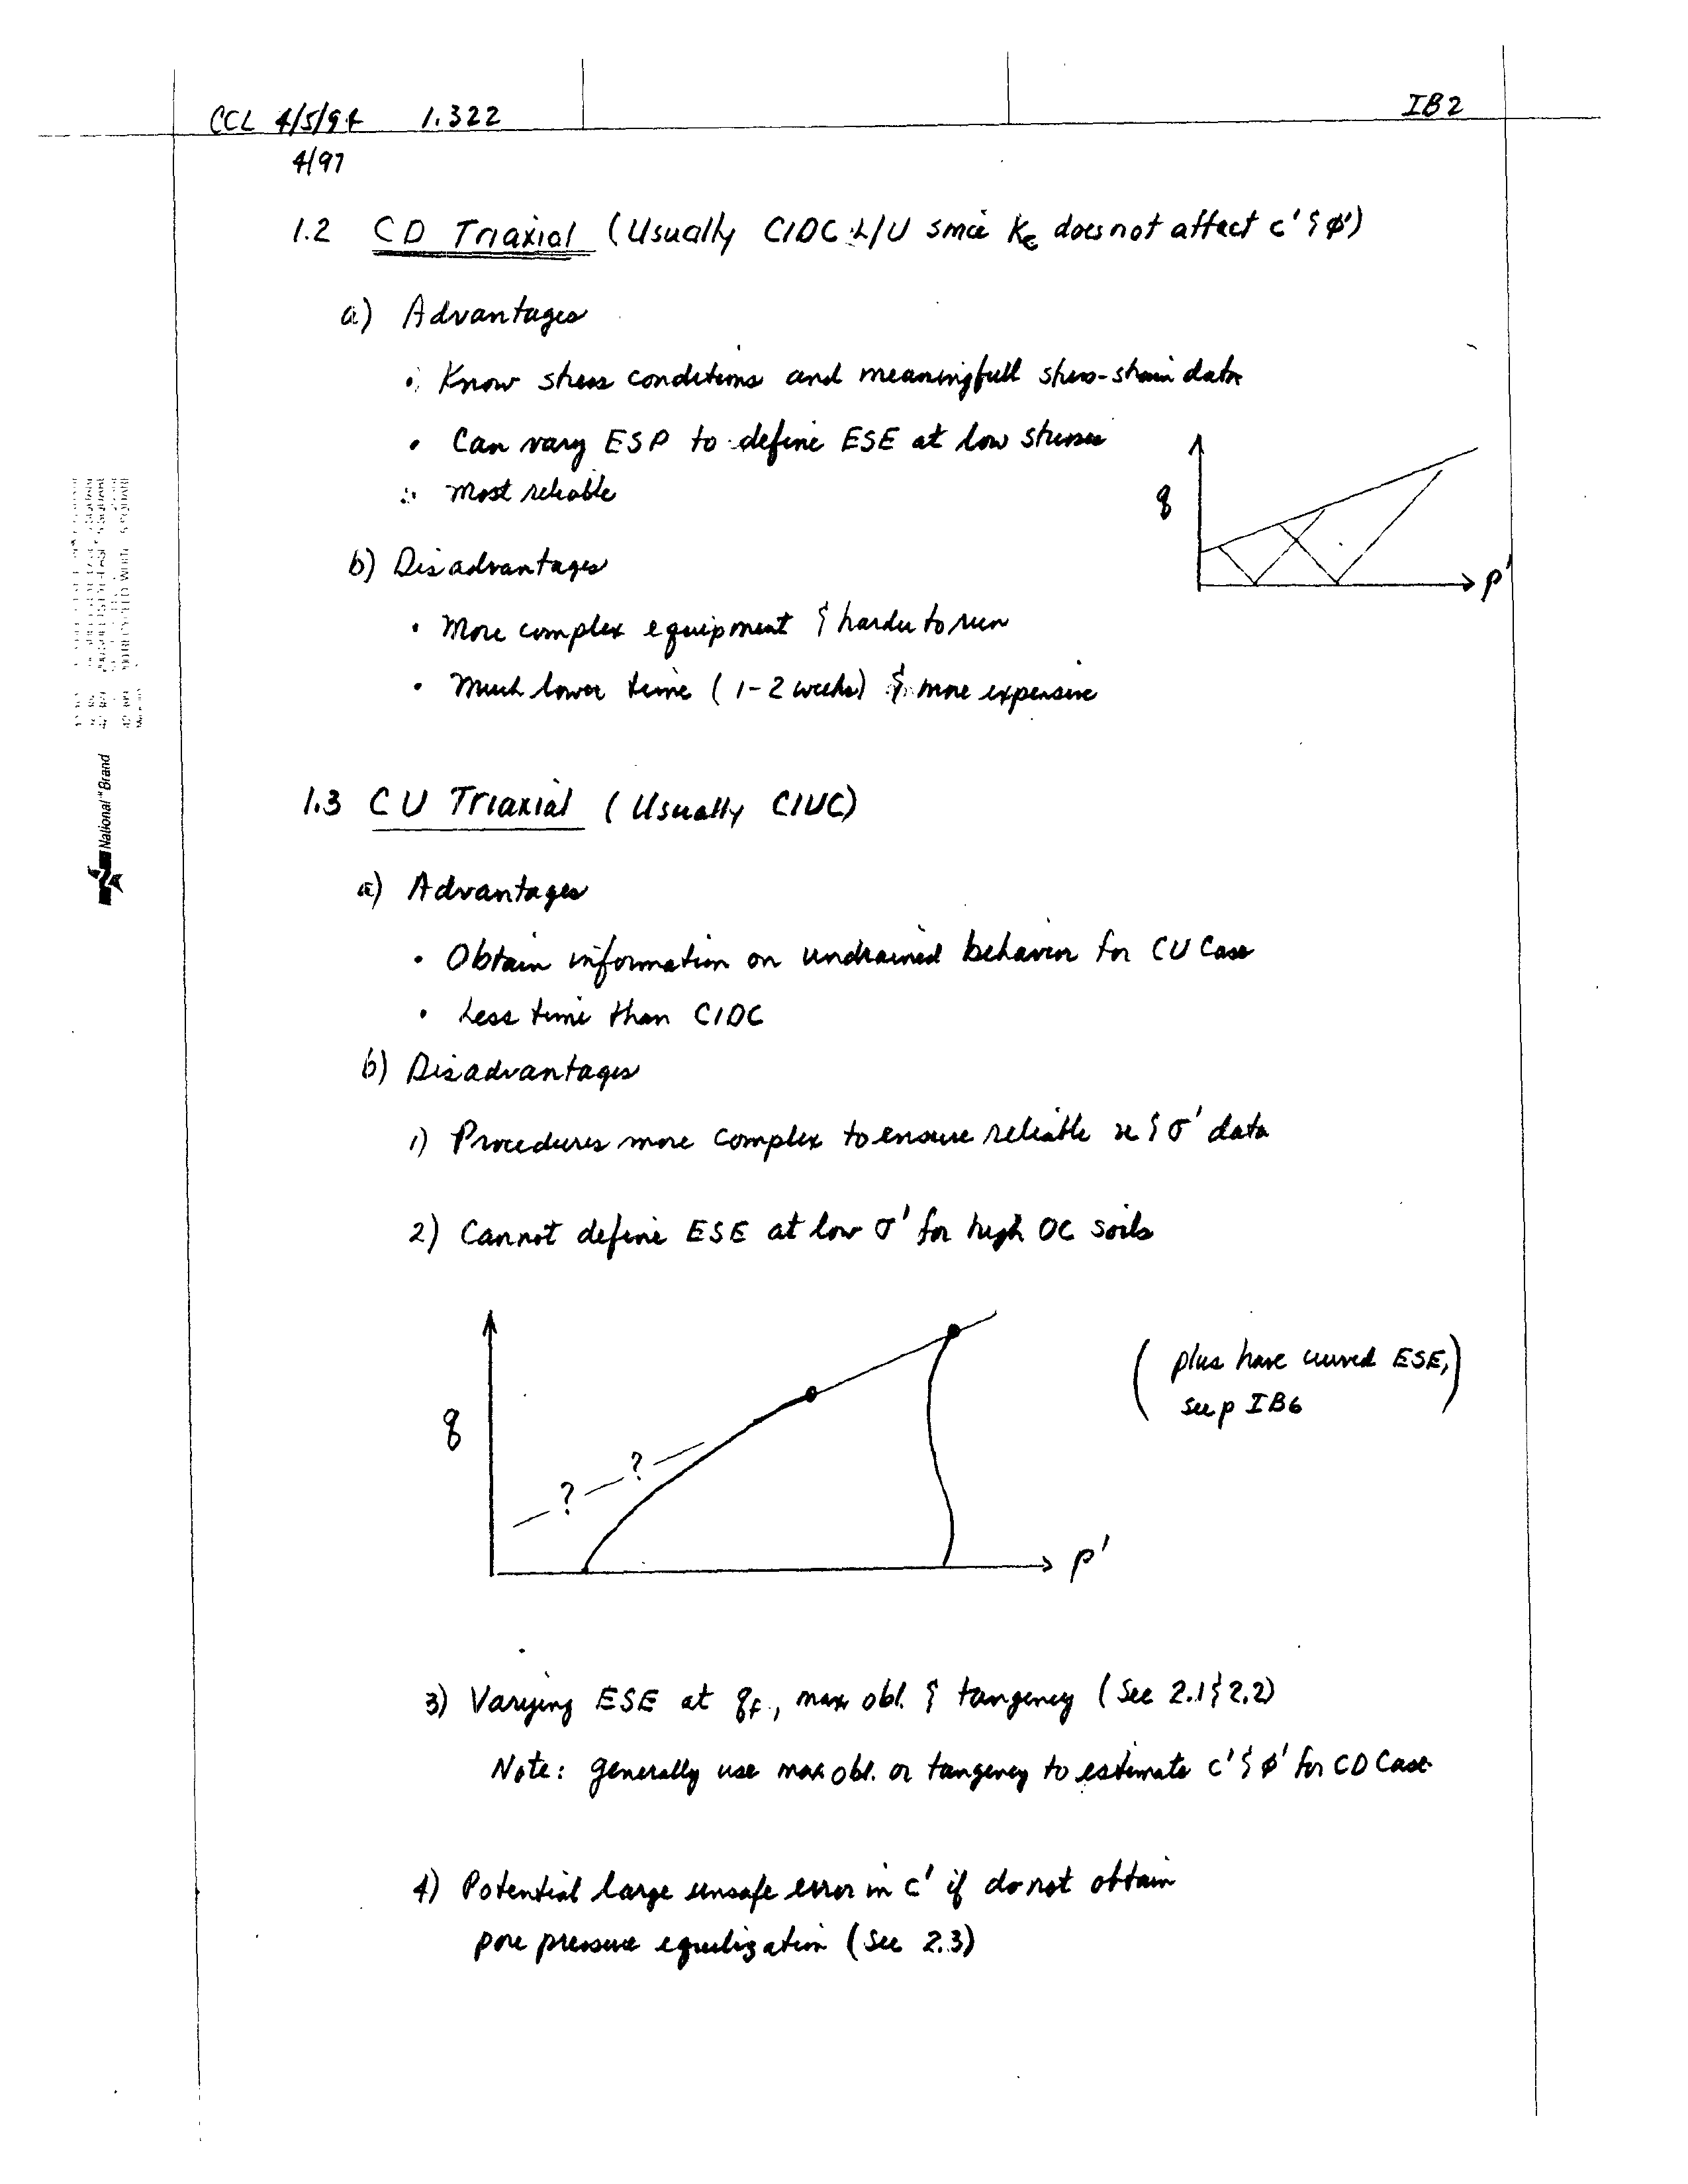 CCL 4/5/94 1.322 IB2
4/97
1.2 CD Triaxial (Usually CIDC L/U since Kc does not affect c' & φ')
a) Advantages
• Know stress conditions and meaningfull stress-strain data
• Can vary ESP to define ESE at low stresses
• Most reliable
q
p'
b) Disadvantages
• More complex equipment & harder to run
• Much lower time (1-2 weeks) & more expensive
1.3 CU Triaxial (Usually CIUC)
a) Advantages
• Obtain information on undrained behavior for CU Case
• Less time than CIDC
b) Disadvantages
1) Procedures more complex to ensure reliable u & σ' data
2) Cannot define ESE at low σ' for high OC soils
(plus have curved ESE,
see p IB6)
q
? ?
p'
3) Varying ESE at qf, max obl. & tangency (See 2.1 & 2.2)
Note: generally use max obl. or tangency to estimate c' & φ' for CD Case
4) Potential large unsafe error in c' if do not obtain
pore pressure equilization (See 2.3)
National ™ Brand